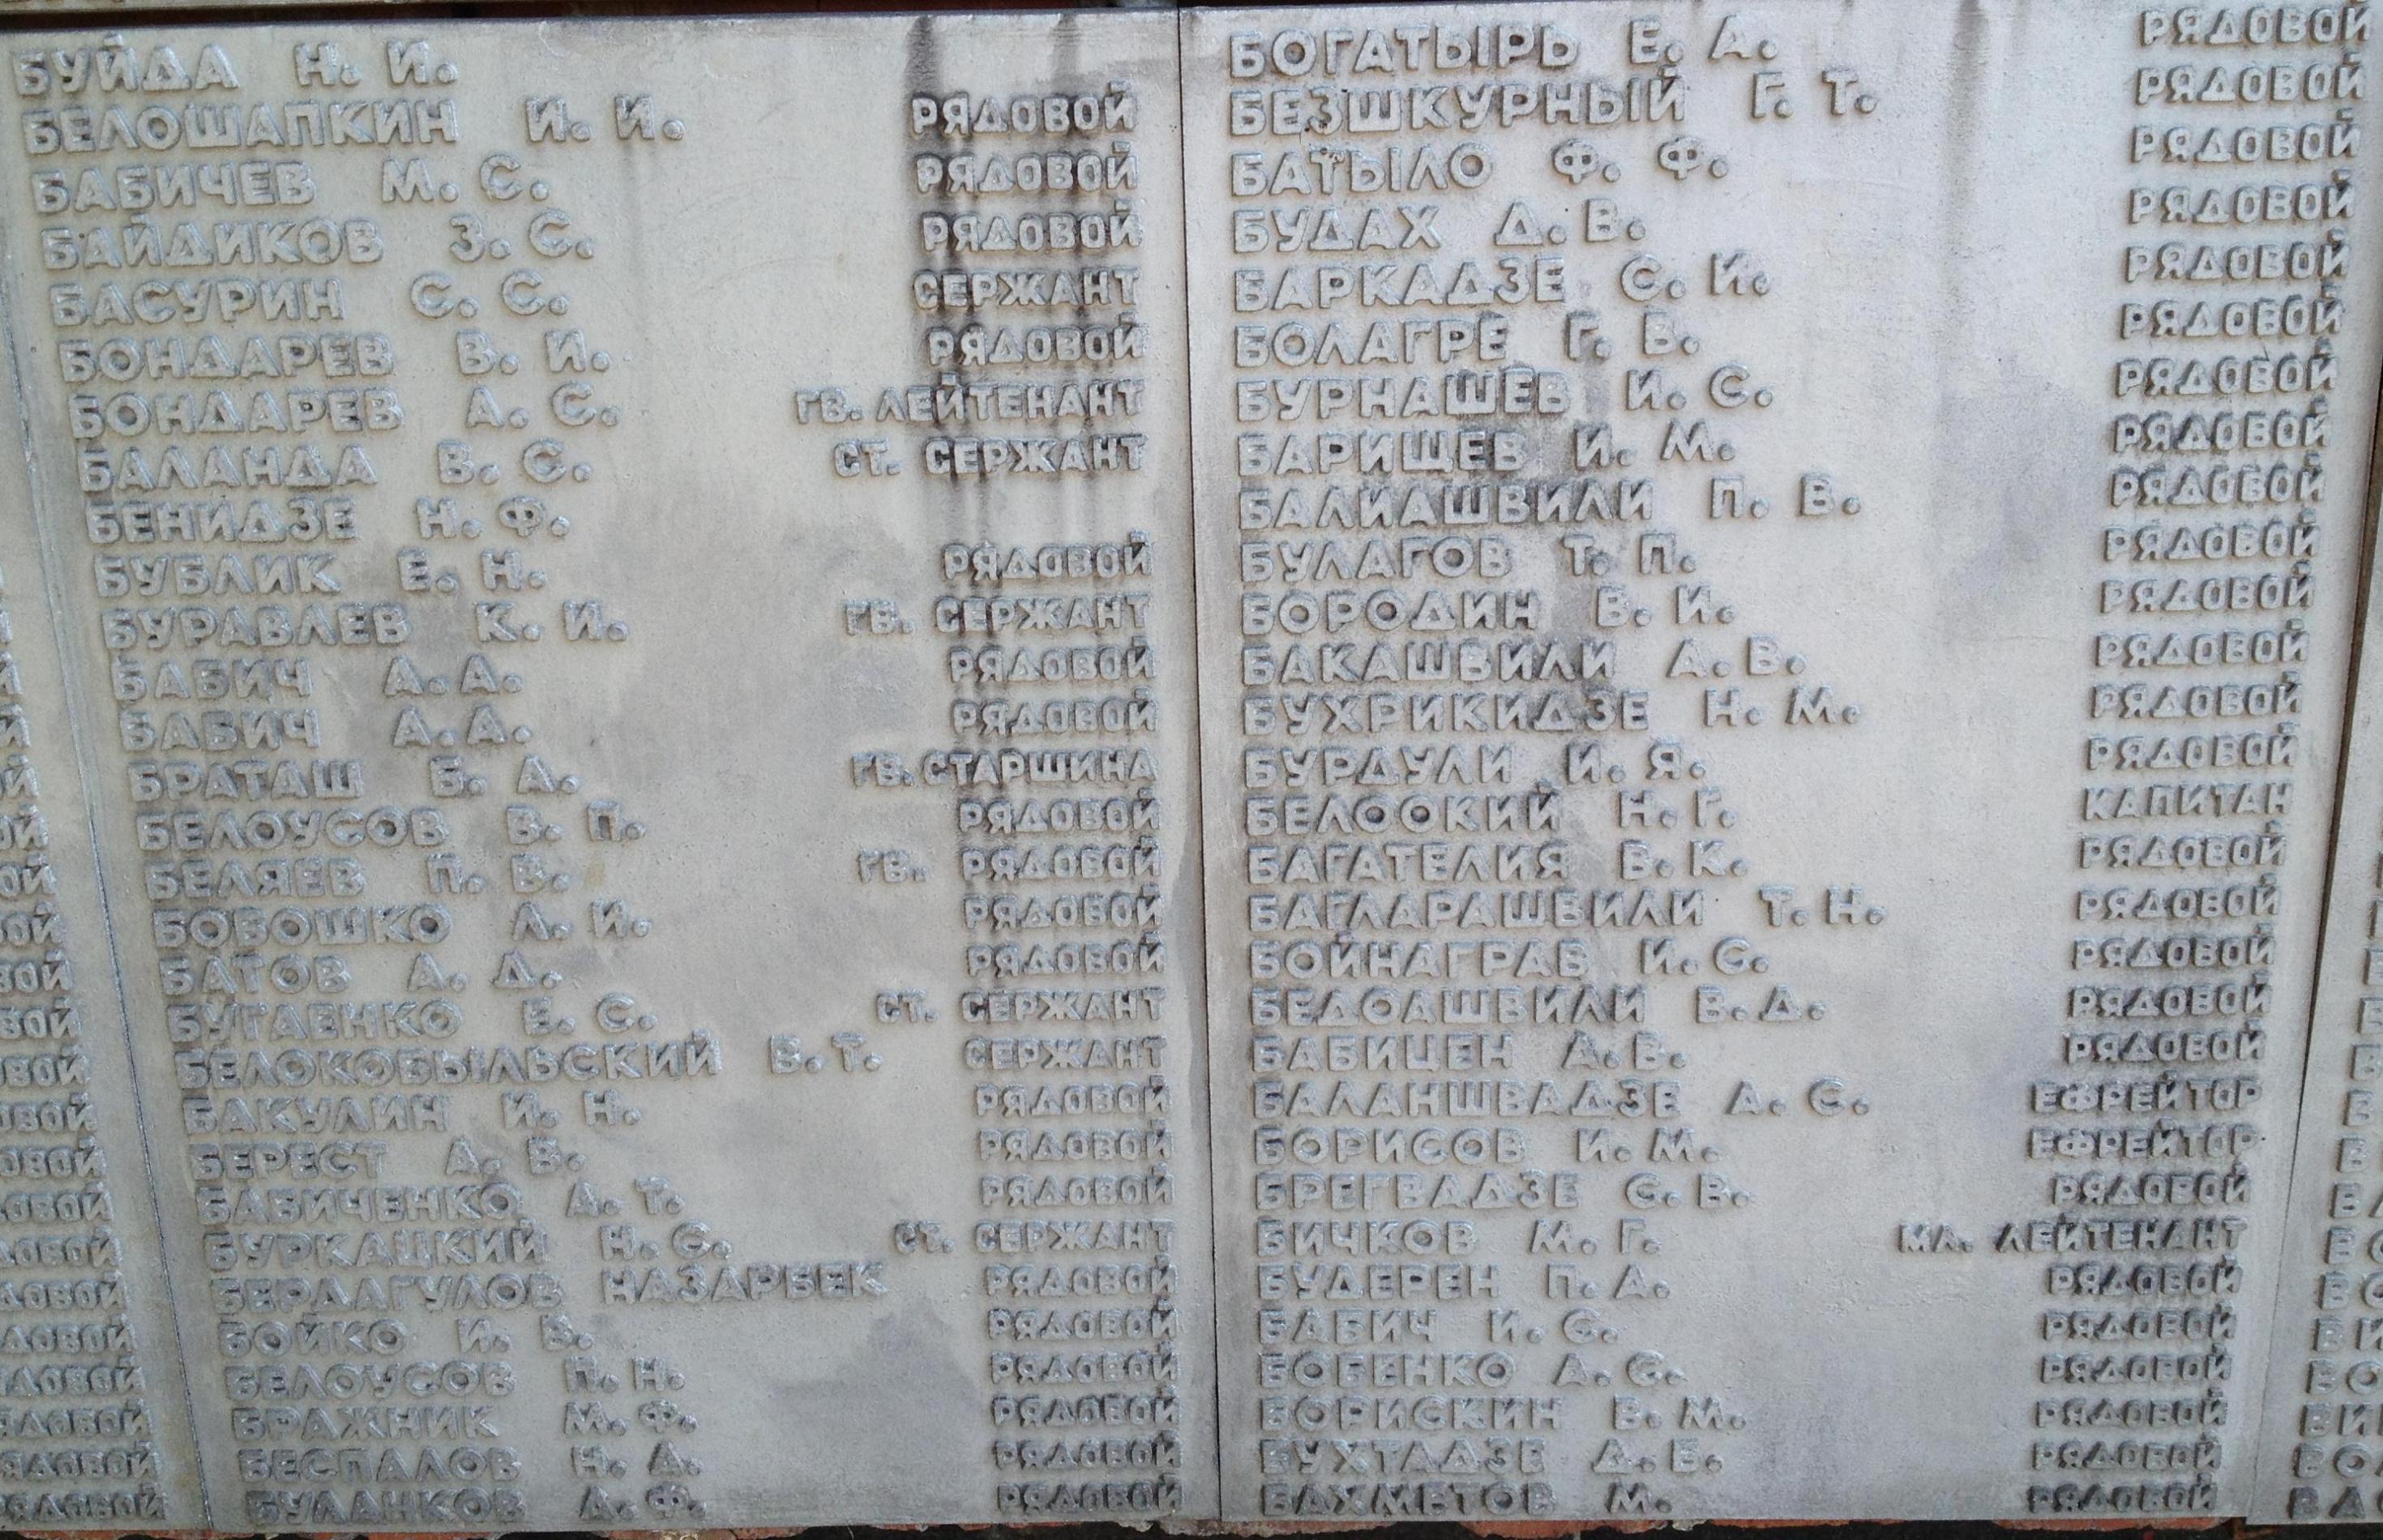 БУЙДА Н. И.
БЕЛОШАПКИН И. И. РЯДОВОЙ
БАБИЧЕВ М. С. РЯДОВОЙ
БАЙДИКОВ З. С. РЯДОВОЙ
БАСУРИН С. С. СЕРЖАНТ
БОНДАРЕВ В. И. РЯДОВОЙ
БОНДАРЕВ А. С. ГВ. ЛЕЙТЕНАНТ
БАЛАНДА В. С. СТ. СЕРЖАНТ
БЕНИДЗЕ Н. Ф.
БУБЛИК Е. Н. РЯДОВОЙ
БУРАВЛЕВ К. И. ГВ. СЕРЖАНТ
БАБИЧ А. А. РЯДОВОЙ
БАБИЧ А. А. РЯДОВОЙ
БРАТАШ Б. А. ГВ. СТАРШИНА
БЕЛОУСОВ В. П. РЯДОВОЙ
БЕЛЯЕВ П. В. ГВ. РЯДОВОЙ
БОВОШКО Л. И. РЯДОВОЙ
БАТОВ А. Д. РЯДОВОЙ
БУГАЕНКО Е. С. СТ. СЕРЖАНТ
БЕЛОКОБЫЛЬСКИЙ В. Т. СЕРЖАНТ
БАКУЛИН И. Н. РЯДОВОЙ
БЕРЕСТ А. В. РЯДОВОЙ
БАБИЧЕНКО А. Т. РЯДОВОЙ
БУРКАЦКИЙ Н. С. СТ. СЕРЖАНТ
БЕРДАГУЛОВ НАЗАРБЕК РЯДОВОЙ
БОЙКО И. В. РЯДОВОЙ
БЕЛОУСОВ П. Н. РЯДОВОЙ
БРАЖНИК М. Ф. РЯДОВОЙ
БЕСПАЛОВ Н. Д. РЯДОВОЙ
БУЛАНКОВ А. Ф. РЯДОВОЙ
БОГАТЫРЬ Е. А. РЯДОВОЙ
БЕЗШКУРНЫЙ Г. Т. РЯДОВОЙ
БАТЫЛО Ф. Ф. РЯДОВОЙ
БУДАХ Д. В. РЯДОВОЙ
БАРКАДЗЕ С. И. РЯДОВОЙ
БОЛАГРЕ Г. В. РЯДОВОЙ
БУРНАШЕВ И. С. РЯДОВОЙ
БАРИЩЕВ И. М. РЯДОВОЙ
БАЛИАШВИЛИ П. В. РЯДОВОЙ
БУЛАГОВ Т. П. РЯДОВОЙ
БОРОДИН В. И. РЯДОВОЙ
БАКАШВИЛИ А. В. РЯДОВОЙ
БУХРИКИДЗЕ Н. М. РЯДОВОЙ
БУРДУЛИ И. Я. РЯДОВОЙ
БЕЛООКИЙ Н. Г. КАПИТАН
БАГАТЕЛИЯ В. К. РЯДОВОЙ
БАГЛАРАШВИЛИ Т. Н. РЯДОВОЙ
БОЙНАГРАБ И. С. РЯДОВОЙ
БЕДОАШВИЛИ В. Д. РЯДОВОЙ
БАБИЦЕН А. В. РЯДОВОЙ
БАЛАНШВАДЗЕ А. С. ЕФРЕЙТОР
БОРИСОВ И. М. ЕФРЕЙТОР
БРЕГВАДЗЕ С. В. РЯДОВОЙ
БИЧКОВ М. Г. МЛ. ЛЕЙТЕНАНТ
БУДЕРЕН П. А. РЯДОВОЙ
БАБИЧ И. С. РЯДОВОЙ
БОБЕНКО А. С. РЯДОВОЙ
БОРИСКИН В. М. РЯДОВОЙ
БУХТАДЗЕ Д. Б. РЯДОВОЙ
БАХМЕТОВ М. РЯДОВОЙ